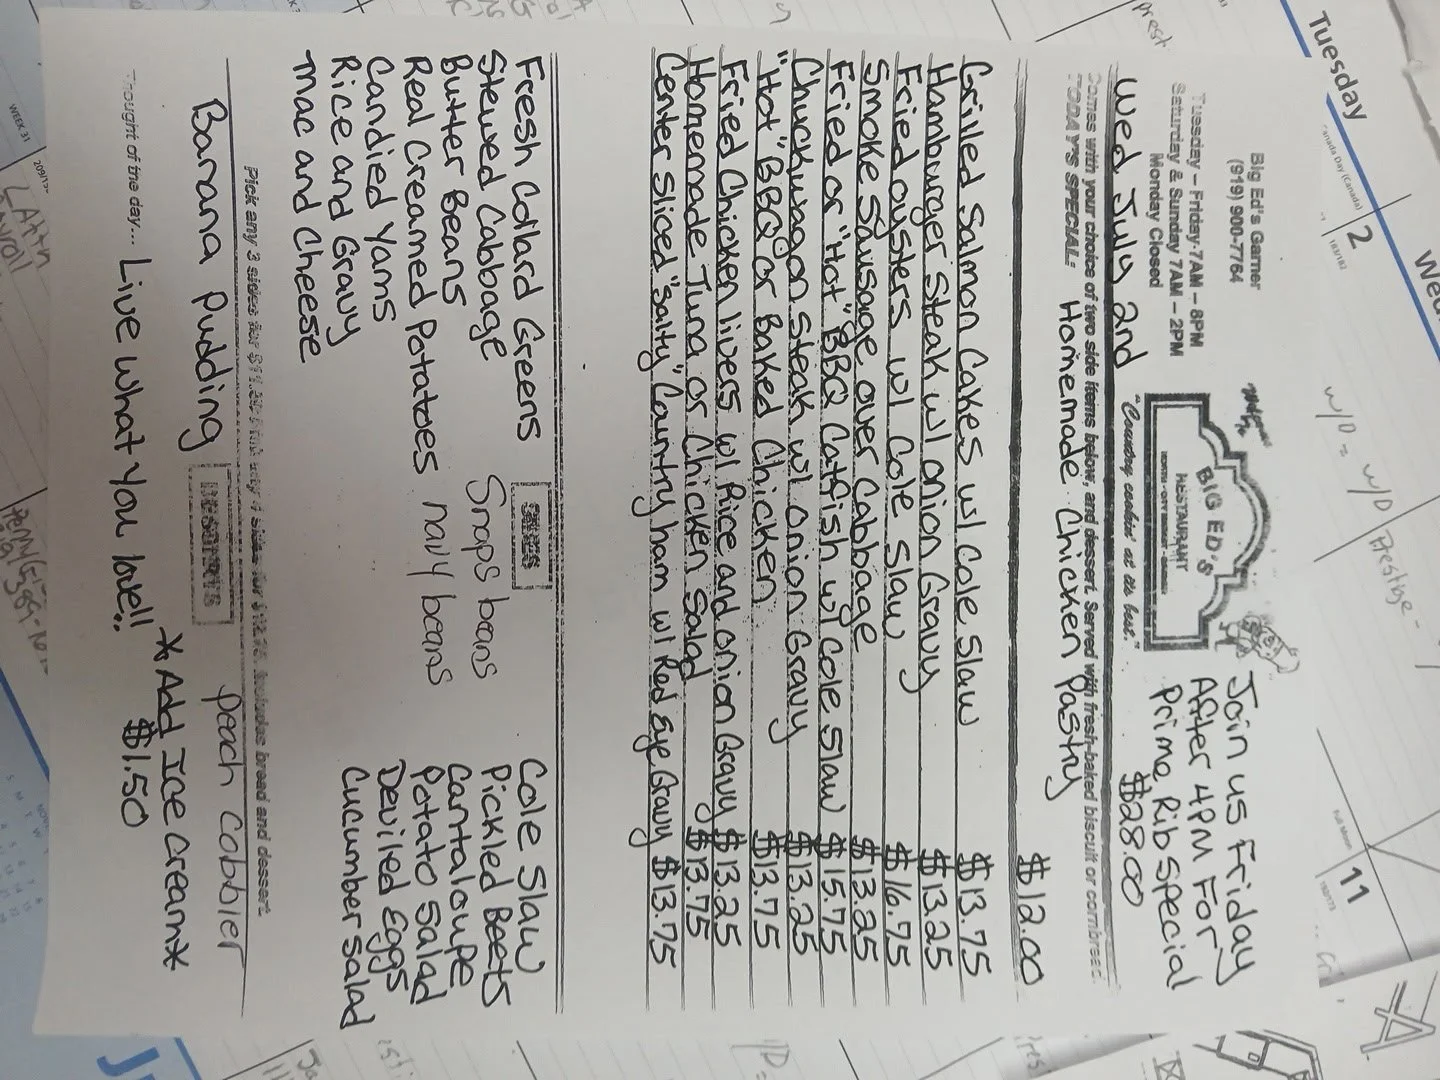 Big Ed's Garner
(919) 900-7764
Tuesday – Friday 7AM – 8PM
Saturday & Sunday 7AM – 2PM
Monday Closed
BIG ED'S
RESTAURANT
"Country cookin' at its best."
Join us Friday
After 4PM For
Prime Rib Special
$28.00
Wed July 2nd
Comes with your choice of two side items below, and dessert. Served with fresh-baked biscuit or cornbread.
TODAY'S SPECIAL: Homemade Chicken Pastry $12.00
Grilled Salmon Cakes w/ Cole Slaw $13.75
Hamburger Steak w/ onion Gravy $13.25
Fried oysters w/ Cole Slaw $16.75
Smoke Sausage over Cabbage $13.25
Fried or "Hot" BBQ Catfish w/ Cole Slaw $15.75
Chuckwagon Steak w/ onion Gravy $13.25
"Hot" BBQ or Baked Chicken $13.75
Fried Chicken livers w/ Rice and onion Gravy $13.25
Homemade Tuna or Chicken Salad $13.75
Center Sliced "Salty" Country ham w/ Red Eye Gravy $13.75
SIDES
Fresh Collard Greens Cole Slaw
Stewed Cabbage Snaps beans Pickled Beets
Butter Beans Cantaloupe
Real Creamed Potatoes navy beans Potato Salad
Candied Yams Deviled Eggs
Rice and Gravy Cucumber Salad
Mac and Cheese
Pick any 3 sides for includes bread and dessert.
DESSERTS
Banana Pudding peach cobbler
*Add Ice Cream*
$1.50
Thought of the day... Live what you love!!
Tuesday
Canada Day (Canada)
2
183/182
11
Full Moon
192/173
WEEK 31
w/D = w/D
Prestage -